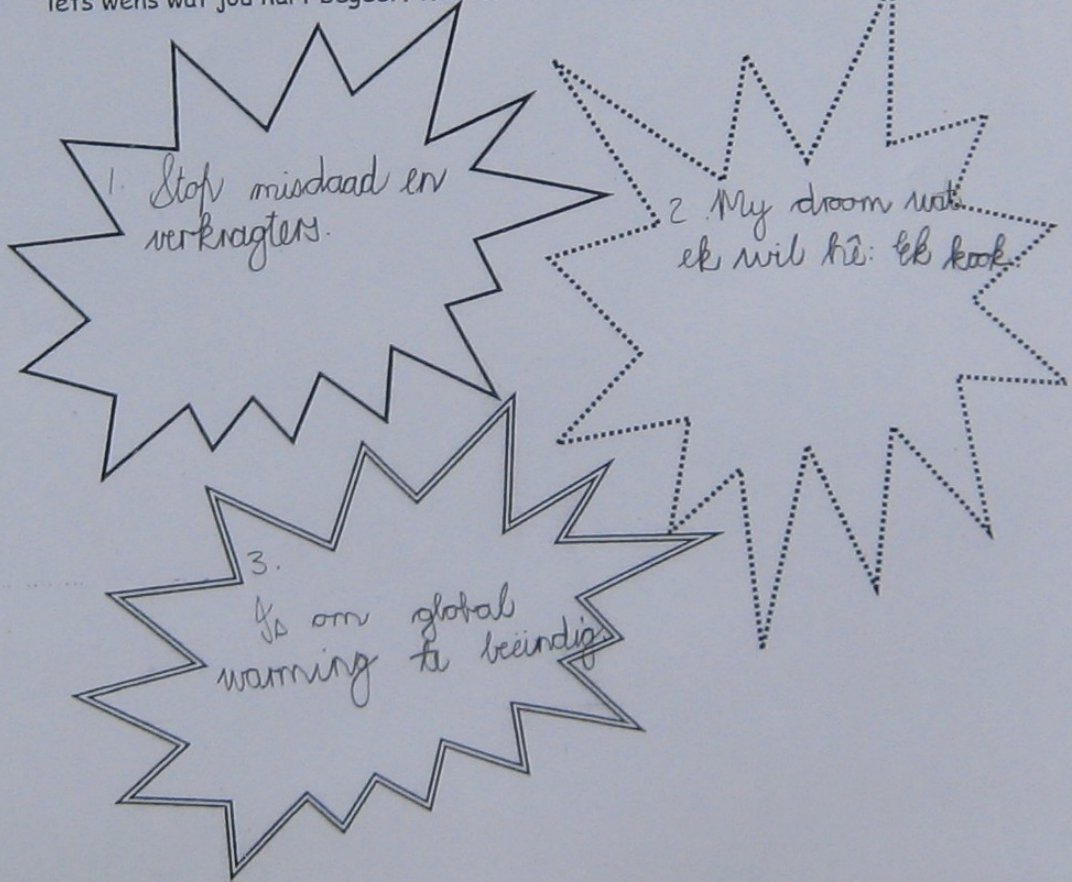 iets wens wat jou hart begeer.
1. Stop misdaad en
verkragters.
2. My droom wat
ek wil hê: Ek kook.
3.
Is om global
warming te beëindig.